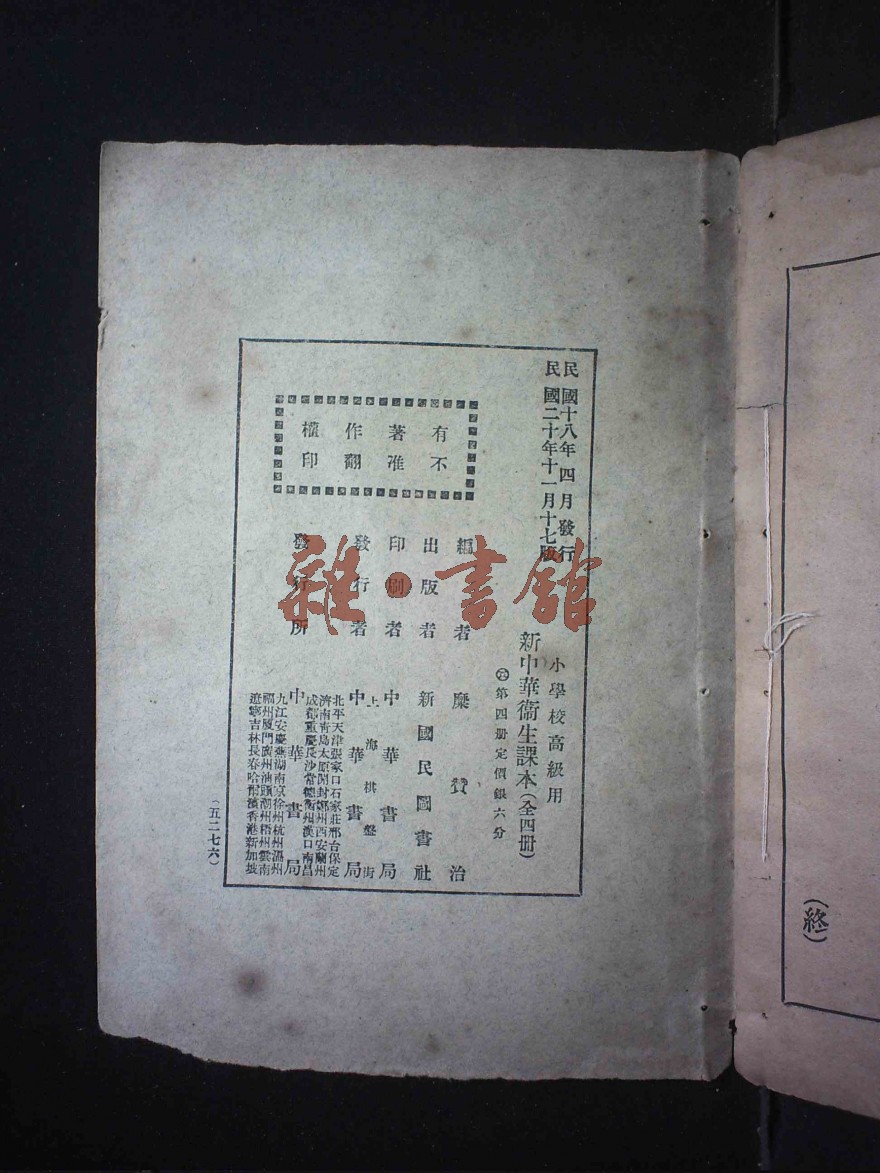 民國十八年四月發行
民國二十年十一月十七版
小學校高級用
新中華衞生課本(全四册)
第四册定價銀六分
有著作權
不准翻印
編者 糜贊治
出版者 新國民圖書社
印刷者 中華書局
上海棋盤街
發行者 中華書局
發行所 中華書局
北平天津張家口石家莊邢台保定
濟南青島太原開封鄭州西安蘭州
成都重慶長沙常德衡州漢口南昌
九江安慶蕪湖南京徐州杭州溫州
福州厦門廣州汕頭潮州梧州雲南
遼寧吉林長春哈爾濱香港新加坡
(五二七六)
(終)
雜·書館